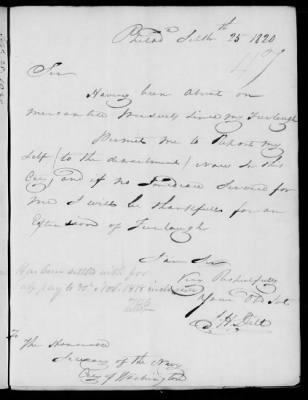 Philad
25 1820
Sir
Having been absent on
mercantile pursuits since my Furlough
Permit me to Report my
self (to the department) now in this
City and if no Service for
me I will be thankfull for an
Extension of Furlough
I am Sir
Very Respectfully
Your Obt St
Has been settled with for
pay to 30 Nov. 1819
To
The Honorable
Secretary of the Navy
City of Washington